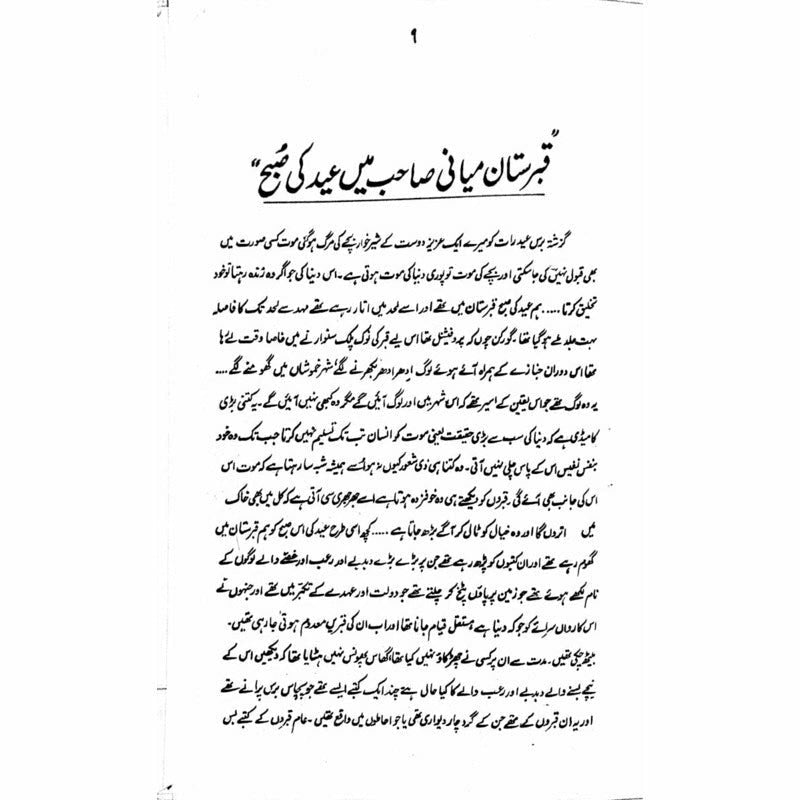 ۹
"قبرستان میانی صاحب میں عید کی صُبح"
گزشتہ برس عید رات کو میرے ایک عزیز دوست کے شیر خوار بچے کی مرگ ہو گئی موت کسی صورت میں
بھی قبول نہیں کی جا سکتی اور بچے کی موت تو پوری دنیا کی موت ہوتی ہے۔ اس دنیا کی جو اگر وہ زندہ رہتا تو خود
تخلیق کرتا ..... ہم عید کی صبح قبرستان میں تھے اور اسے لحد میں اتار رہے تھے مہد سے لحد تک کا فاصلہ
بہت جلد طے ہو گیا تھا۔ گورکن چوں کہ پروفیشنل تھا اس لیے قبر کی نوک پلک سنوارنے میں خاصا وقت لے رہا
تھا اس دوران جنازے کے ہمراہ آئے ہوئے لوگ اِدھر ادھر بکھرنے لگے شہر خموشاں میں گھومنے لگے ....
یہ وہ لوگ تھے جو اس یقین کے اسیر تھے کہ اس شہر میں اور لوگ آئیں گے مگر وہ کبھی نہیں آئیں گے۔ یہ کتنی بڑی
کامیڈی ہے کہ دنیا کی سب سے بڑی حقیقت یعنی موت کو انسان تب تک تسلیم نہیں کرتا جب تک وہ خود
بنفس نفیس اس کے پاس چلی نہیں آتی۔ وہ کتنا ہی ذی شعور کیوں نہ ہو اُسے ہمیشہ شبہ سا رہتا ہے کہ موت اس
اس کی جانب بھی آئے گی۔ قبروں کو دیکھتے ہی وہ خوفزدہ ہوتا ہے اسے جھرجھری سی آتی ہے کہ کل میں بھی خاک
میں اتروں گا اور وہ خیال کو ٹال کر آگے بڑھ جاتا ہے ..... کچھ اسی طرح عید کی اس صبح کو ہم قبرستان میں
گھوم رہے تھے اور ان کتبوں کو پڑھ رہے تھے جن پر بڑے بڑے دبدبے اور رعب اور غصے والے لوگوں کے
نام لکھے ہوئے تھے جو زمین پر پاؤں پٹخ کر چلتے تھے جو دولت اور عہدے کے تکبّر میں تھے اور جنہوں نے
اس کارواں سرائے کو جو کہ دنیا ہے مستقل قیام جانا تھا اور اب ان کی قبریں معدوم ہوتی جا رہی تھیں۔
بیٹھ چکی تھیں۔ مدت سے ان پر کسی نے چھڑکاؤ نہیں کیا تھا گھاس پھونس نہیں ہٹایا تھا کہ دیکھیں اس کے
نیچے بسنے والے دبدبے اور رعب والے کا کیا حال ہے چند ایک کتبے ایسے تھے جو پچاس برس پرانے تھے
اور یہ ان قبروں کے تھے جن کے گرد چار دیواری تھی یا جو احاطوں میں واقع تھیں۔ عام قبروں کے کتبے بس